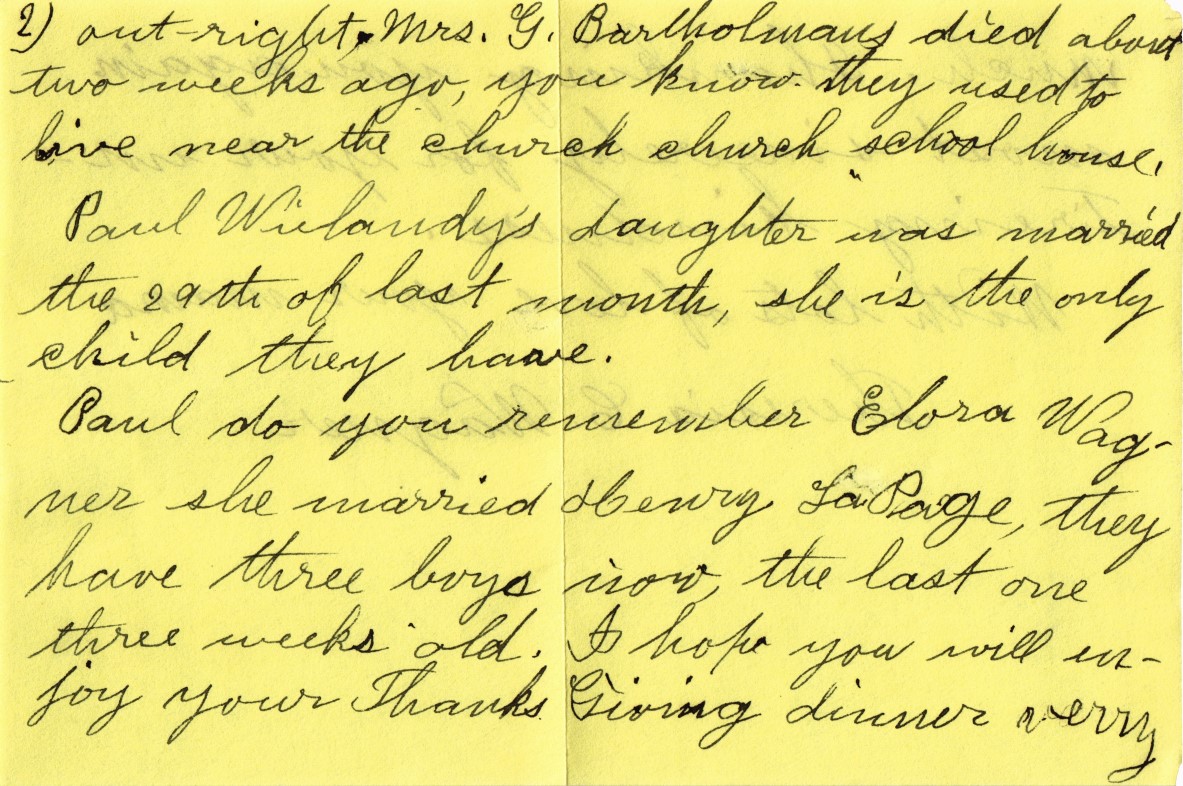 2) out-right. Mrs. G. Bartholmaus died about
two weeks ago, you know. they used to
live near the church church school house.
Paul Wielandy's daughter was married
the 29th of last month, she is the only
child they have.
Paul do you remember Elora Wag-
ner she married Henry LaPage, they
have three boys now, the last one
three weeks old. I hope you will en-
joy your Thanks Giving dinner verry